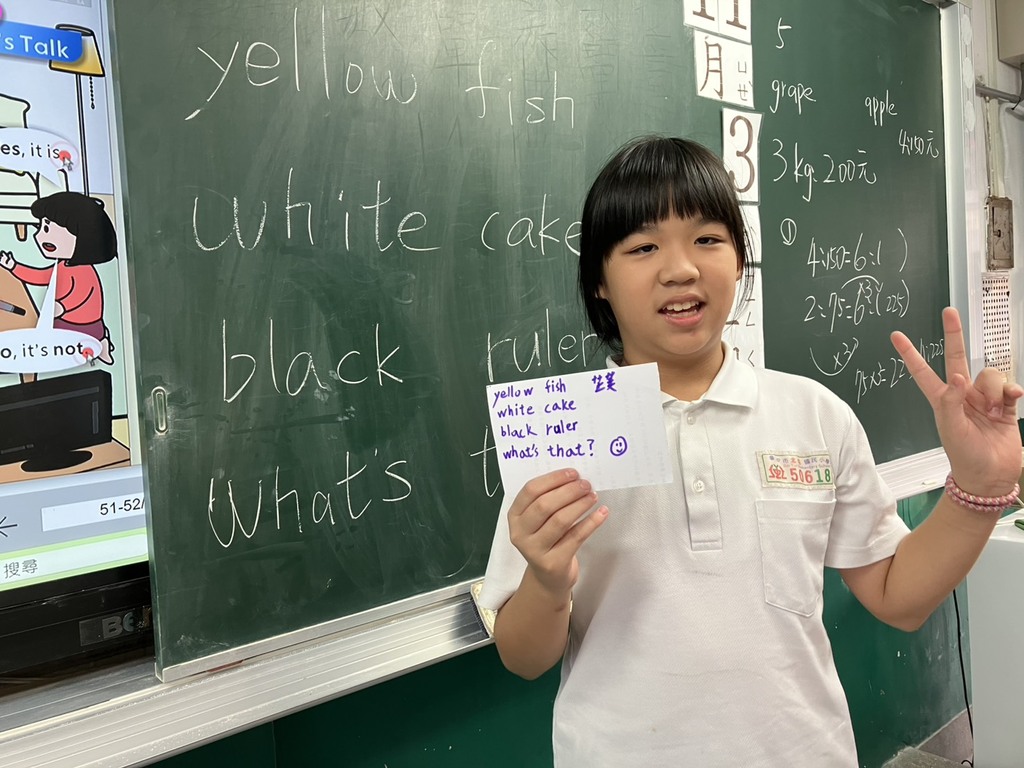 's Talk
es, it is
o, it's not.
51-52/
搜尋
yellow fish
white cake
black ruler
what's t
11
月
3
5
grape apple
4:150元
3kg:200元
①
4:150=6:( )
2:75=6:(225)
×3
yellow fish
white cake
black ruler
what's that? ☺
50618